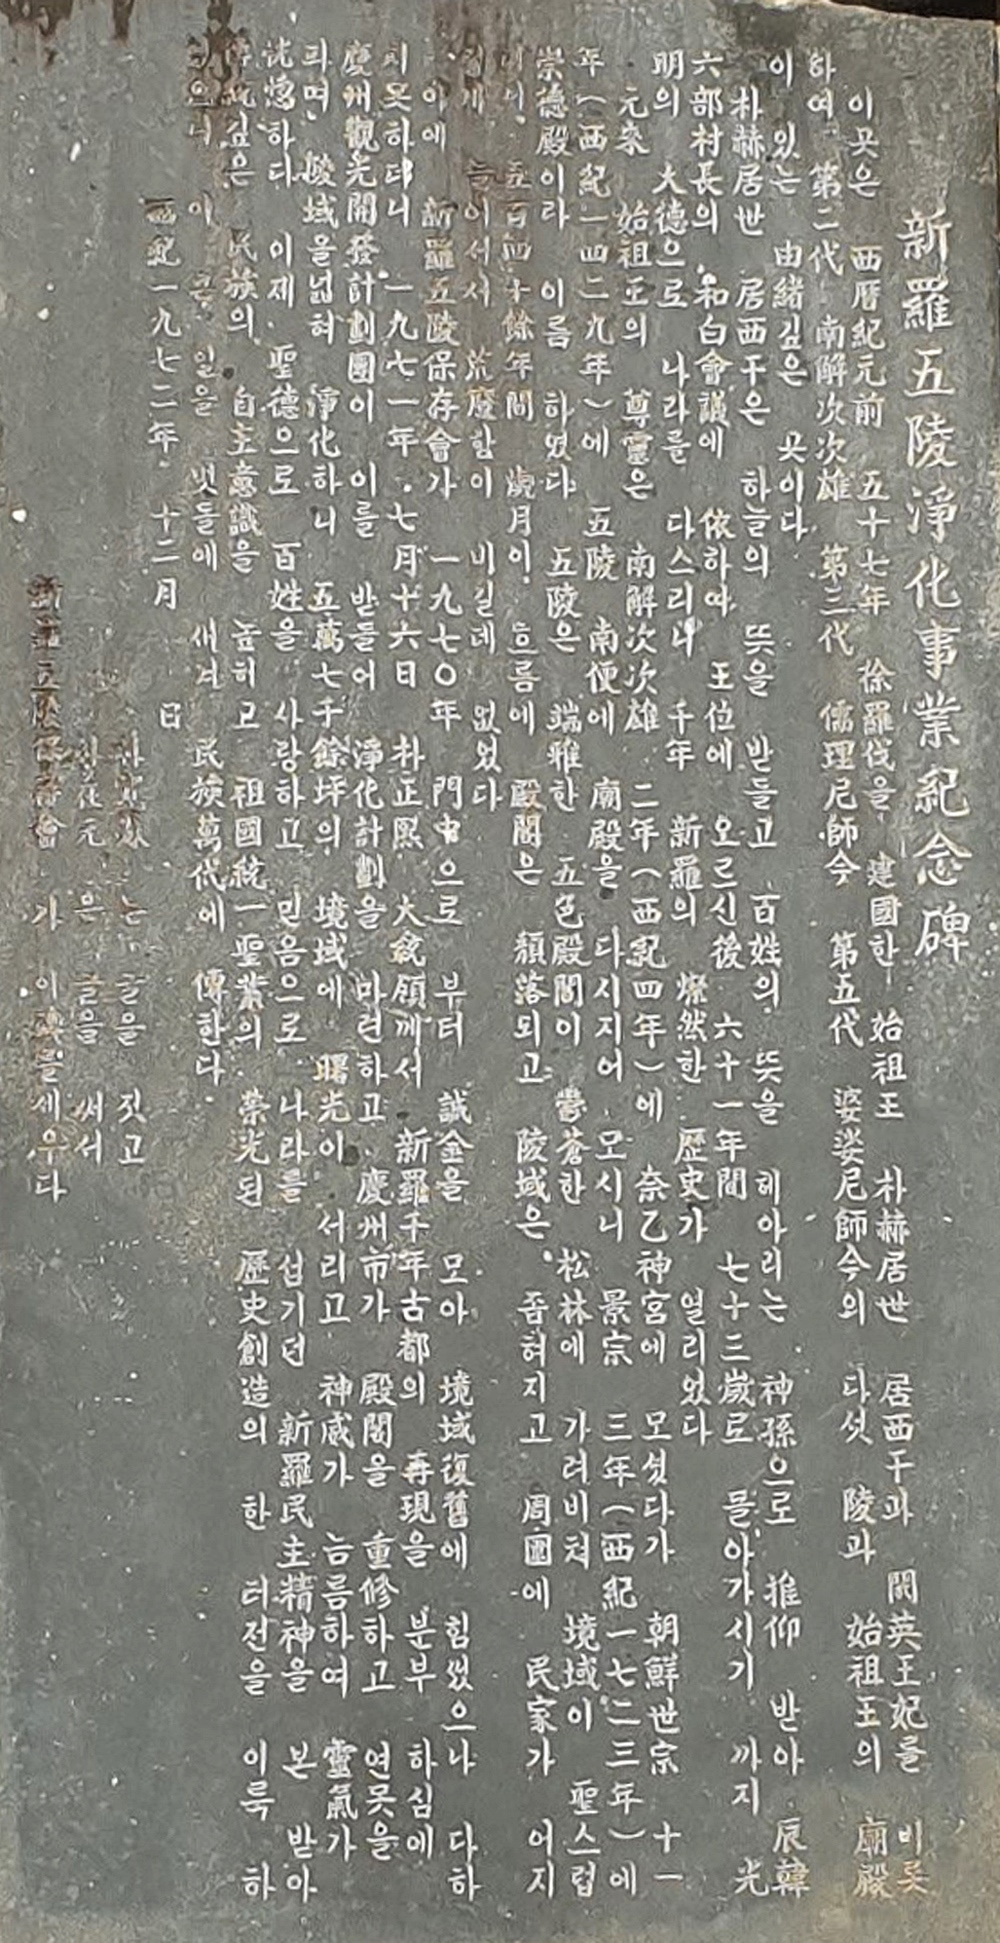 新羅五陵淨化事業紀念碑
이곳은 西曆紀元前 五十七年 徐羅伐을 建國한 始祖王 朴赫居世 居西干과 閼英王妃를 비롯
하여 第二代 南解次次雄 第三代 儒理尼師今 第五代 婆娑尼師今의 다섯 陵과 始祖王의 廟殿
이 있는 由緖깊은 곳이다
朴赫居世 居西干은 하늘의 뜻을 받들고 百姓의 뜻을 헤아리는 神孫으로 推仰 받아 辰韓
六部村長의 和白會議에 依하여 王位에 오르신後 六十一年間 七十三歲로 돌아가시기 까지 光
明의 大德으로 나라를 다스리니 千年 新羅의 燦然한 歷史가 열리었다
元來 始祖王의 尊靈은 南解次次雄 二年(西紀四年)에 奈乙神宮에 모셨다가 朝鮮世宗 十一
年(西紀一四二九年)에 五陵 南便에 廟殿을 다시지어 모시니 景宗 三年(西紀一七二三年)에
崇德殿이라 이름 하였다 五陵은 端雅한 五色殿閣이 鬱蒼한 松林에 가려비쳐 境域이 聖스럽
五百四十餘年間 歲月이 흐름에 殿閣은 頹落되고 陵域은 좁혀지고 周圍에 民家가 어지
늘어서서 荒廢함이 비길데 없었다
이에 新羅五陵保存會가 一九七〇年 門中으로 부터 誠金을 모아 境域復舊에 힘썼으나 다하
지못하더니 一九七一年 七月十六日 朴正熙 大統領께서 新羅千年古都의 再現을 분부 하심에
慶州觀光開發計劃團이 이를 받들어 淨化計劃을 마련하고 慶州市가 殿閣을 重修하고 연못을
파며 陵域을넓혀 淨化하니 五萬七千餘坪의 境域에 曙光이 서리고 神威가 늠름하여 靈氣가
恍惚하다 이제 聖德으로 百姓을 사랑하고 믿음으로 나라를 섬기던 新羅民主精神을 본 받아
깊은 民族의 自主意識을 높히고 祖國統一聖業의 榮光된 歷史創造의 한 터전을 이룩 하
였으니 이 큰 일을 빗돌에 새겨 民族萬代에 傳한다
西紀一九七二年 十二月 日
는 글을 짓고
은 글을 써서
新羅五陵保存會 가 이碑를세우다